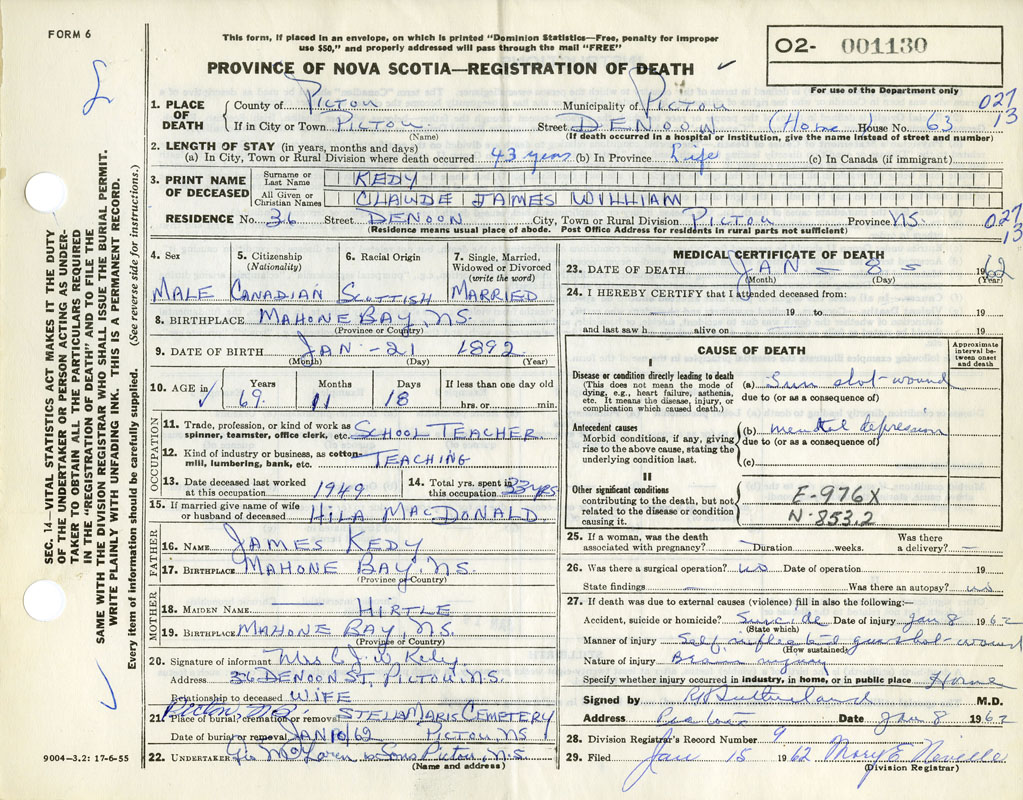 FORM 6
This form, if placed in an envelope, on which is printed "Dominion Statistics—Free, penalty for improper
use $50," and properly addressed will pass through the mail "FREE"
PROVINCE OF NOVA SCOTIA—REGISTRATION OF DEATH
02- 001130
For use of the Department only
1. PLACE OF DEATH
County of PICTOU Municipality of PICTOU 027
If in City or Town PICTOU (Name) Street DENOON (Home) House No. 63 13
(If death occurred in a hospital or institution, give the name instead of street and number)
2. LENGTH OF STAY (in years, months and days)
(a) In City, Town or Rural Division where death occurred 43 years (b) In Province Life (c) In Canada (if immigrant)
3. PRINT NAME OF DECEASED
Surname or Last Name KEDY
All Given or Christian Names CLAUDE JAMES WILLIAM
RESIDENCE No. 36 Street DENOON City, Town or Rural Division PICTOU Province NS. 027
(Residence means usual place of abode. Post Office Address for residents in rural parts not sufficient) 13
4. Sex MALE
5. Citizenship (Nationality) CANADIAN
6. Racial Origin SCOTTISH
7. Single, Married, Widowed or Divorced (write the word) MARRIED
8. BIRTHPLACE MAHONE BAY, NS.
(Province or Country)
9. DATE OF BIRTH JAN - 21 1892
(Month) (Day) (Year)
10. AGE in Years 69 Months 11 Days 18 If less than one day old hrs. or min.
OCCUPATION
11. Trade, profession, or kind of work as spinner, teamster, office clerk, etc. SCHOOL TEACHER
12. Kind of industry or business, as cotton-mill, lumbering, bank, etc. TEACHING
13. Date deceased last worked at this occupation 1949
14. Total yrs. spent in this occupation 33 yrs
15. If married give name of wife or husband of deceased HILA MACDONALD
FATHER
16. NAME JAMES KEDY
17. BIRTHPLACE MAHONE BAY, NS.
(Province or Country)
MOTHER
18. MAIDEN NAME — HIRTLE
19. BIRTHPLACE MAHONE BAY, NS.
Province or Country)
20. Signature of informant Mrs C. J. W. Kedy.
Address 36 DENOON ST, PICTOU, N.S.
Relationship to deceased WIFE
21. Place of burial, cremation or removal STELLA MARIS CEMETERY
Date of burial or removal JAN 10/62 PICTOU NS
22. UNDERTAKER McLaren & Sons Pictou, N.S.
(Name and address)
MEDICAL CERTIFICATE OF DEATH
23. DATE OF DEATH JAN - 8 - 1962
(Month) (Day) (Year)
24. I HEREBY CERTIFY that I attended deceased from:
19 to 19
and last saw h alive on 19
CAUSE OF DEATH
Approximate interval between onset and death
I
Disease or condition directly leading to death
(This does not mean the mode of dying, e.g., heart failure, asthenia, etc. It means the disease, injury, or complication which caused death.)
(a) Gun shot-wound
due to (or as a consequence of)
Antecedent causes
Morbid conditions, if any, giving rise to the above cause, stating the underlying condition last.
(b) mental depression
due to (or as a consequence of)
(c)
II
Other significant conditions
contributing to the death, but not related to the disease or condition causing it.
E-976X
N-853.2
25. If a woman, was the death associated with pregnancy? Duration weeks. Was there a delivery?
26. Was there a surgical operation? no Date of operation 19
State findings Was there an autopsy? no
27. If death was due to external causes (violence) fill in also the following:—
Accident, suicide or homicide? Suicide Date of injury Jan 8 1962
(State which)
Manner of injury Self inflicted gunshot-wound
(How sustained)
Nature of injury Brain injury
Specify whether injury occurred in industry, in home, or in public place Home
Signed by Sutherland M.D.
Address Pictou Date Jan 8 1962
28. Division Registrar's Record Number 9
29. Filed Jan 15 1962 Mary E.
(Division Registrar)
9004—3.2: 17-6-55
SEC. 14—VITAL STATISTICS ACT MAKES IT THE DUTY
OF THE UNDERTAKER OR PERSON ACTING AS UNDER-
TAKER TO OBTAIN ALL THE PARTICULARS REQUIRED
IN THE "REGISTRATION OF DEATH" AND TO FILE THE
SAME WITH THE DIVISION REGISTRAR WHO SHALL ISSUE THE BURIAL PERMIT.
WRITE PLAINLY WITH UNFADING INK. THIS IS A PERMANENT RECORD.
Every item of information should be carefully supplied. (See reverse side for instructions.)